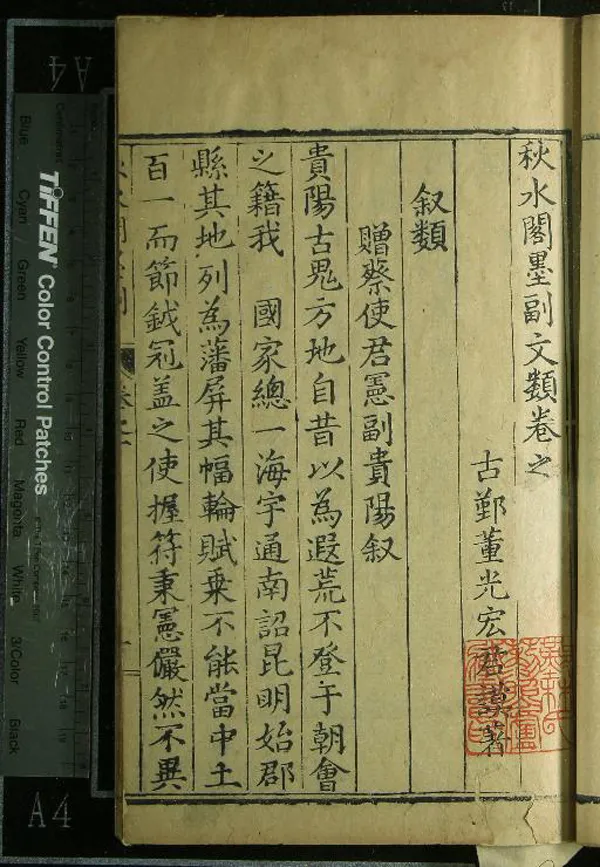 秋水閣墨副文類卷之
古鄞董光宏君謨著
叙類
贈蔡使君憲副貴陽叙
貴陽古鬼方地自昔以為遐荒不登于朝會
之籍我　國家總一海宇通南詔昆明始郡
縣其地列為藩屏其幅輪賦乗不能當中土
百一而節鉞冠盖之使握符秉憲儼然不異
卷之
A4
TIFFEN® Color Control Patches
Blue
Cyan
Green
Yellow
Red
Magenta
White
3/Color
Black
A4